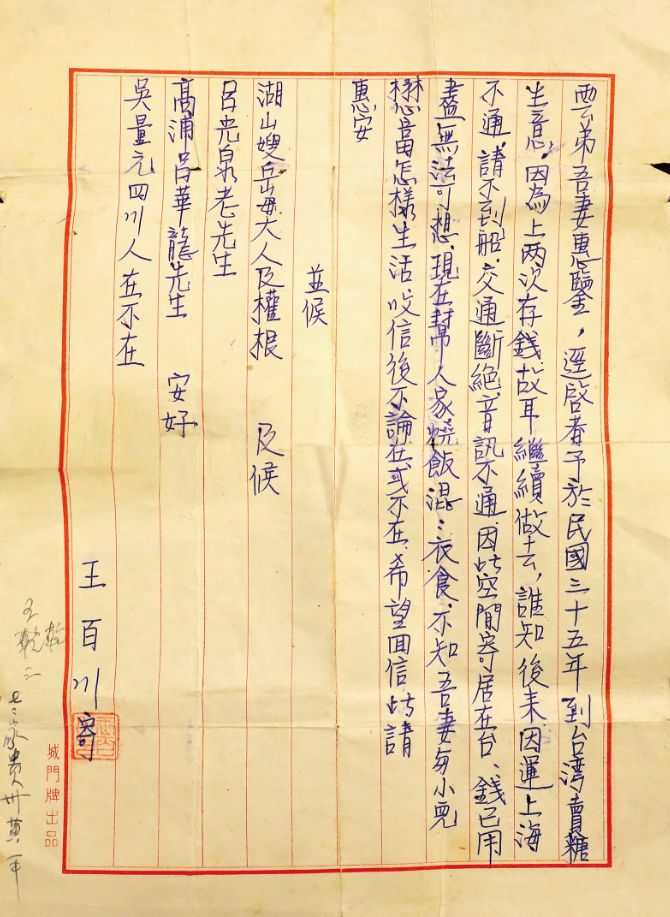 雲弟吾妻惠鑒，逕啓者予於民國三十五年到台湾賣糖
生意，因為上两次存錢，故耳繼續做去，誰知後来因運上海
不通，請不到船，交通斷絕，音訊不通，因此空閒寄居在台、錢已用
盡無法可想，現在幫人家燒飯混：衣食，不知吾妻与小兒
懋當怎樣生活，收信後不論在或不在，希望囬信此請
惠安
並候
湖山嫂岳母大人及權根 及候
呂光泉老先生
高浦呂華龍先生 安好
吳量元四川人在不在
王百川寄
城門牌出品